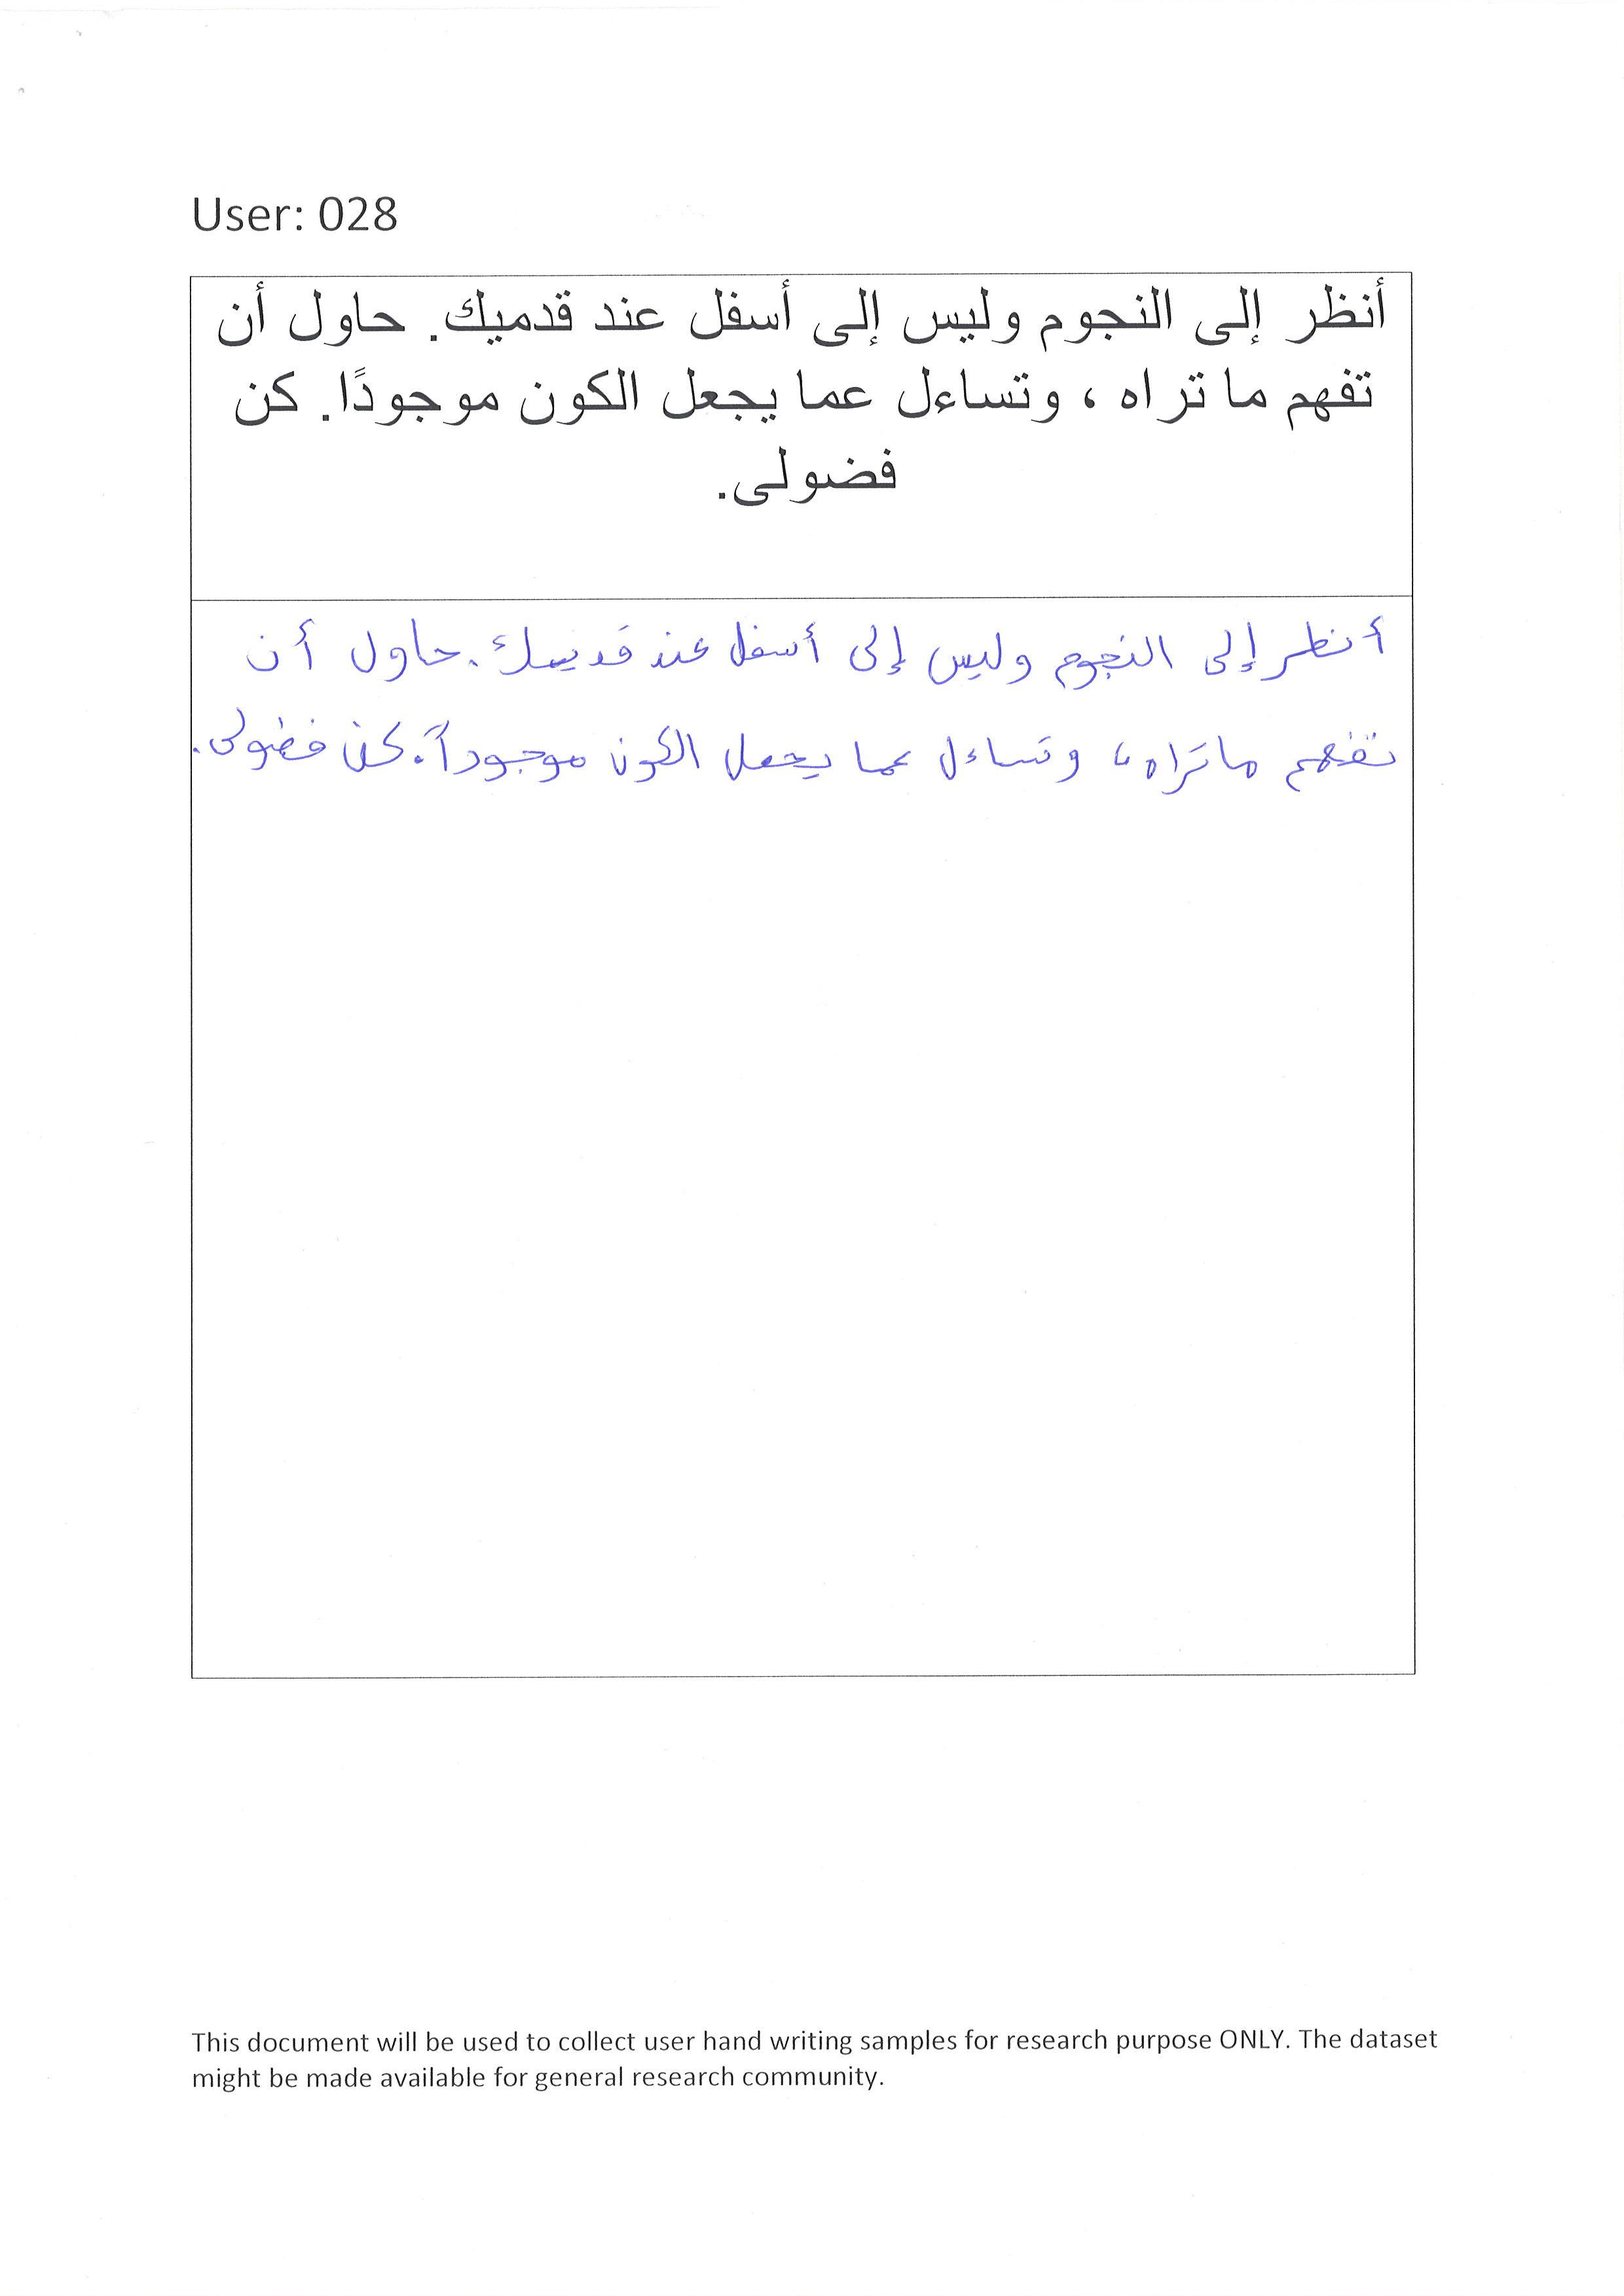 User: 028
أنظر إلى النجوم وليس إلى أسفل عند قدميك. حاول أن
تفهم ما تراه ، وتساءل عما يجعل الكون موجودًا. كن
فضولى.
أنظر إلى النجوم وليس إلى أسفل عند قدميك. حاول أن
تفهم ما تراه، وتساءل عما يجعل الكون موجوداً. كن فضولى.
This document will be used to collect user hand writing samples for research purpose ONLY. The dataset
might be made available for general research community.